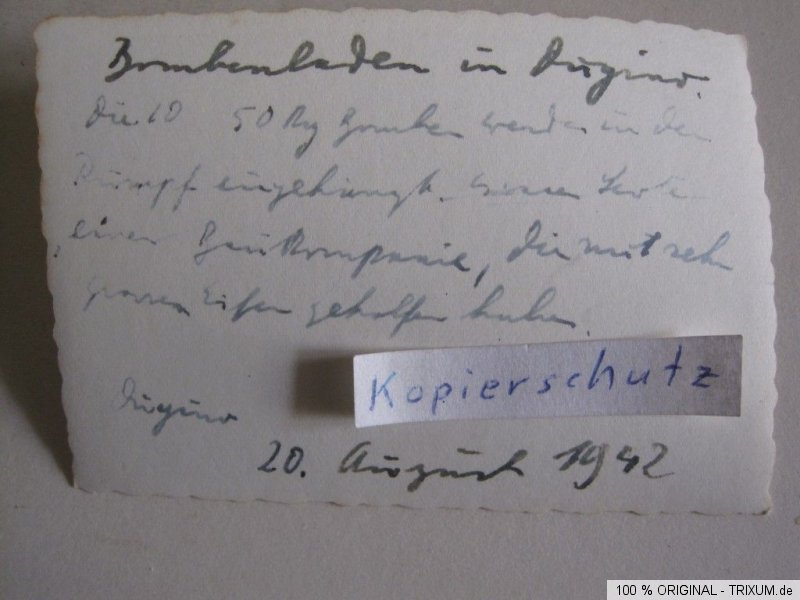 Bombenladen in Dugino.
Die 10 50 Kg Bomben werden in den
Rumpf eingehängt. Leute
einer Baukompanie, die mit sehr
grossen Eifer geholfen haben.
Kopierschutz
Dugino
20. August 1942
100 % ORIGINAL - TRIXUM.de